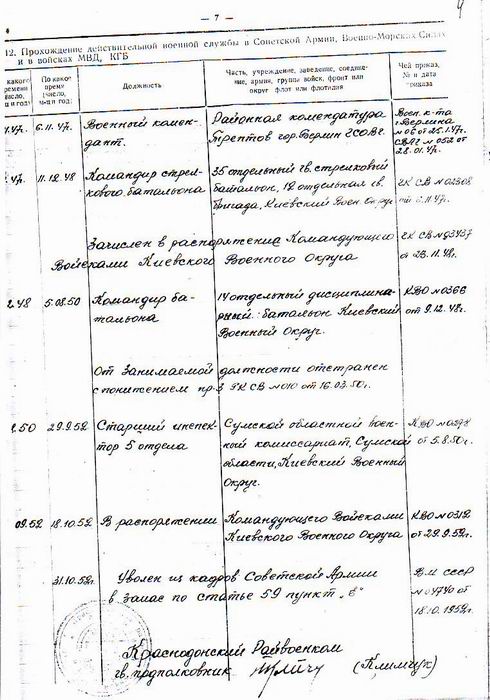 — 7 —
4
12. Прохождение действительной военной службы в Советской Армии, Военно-Морских Силах
и в войсках МВД, КГБ
какого времени (число, м-ц и год)
По какое время (число, м-ц и год)
Должность
Часть, учреждение, заведение, соединение, армия, группа войск, фронт или округ флот или флотилия
Чей приказ, № и дата приказа
6.11.47.
Военный комендант.
Районная комендатура
Трептов гор. Берлин ГСОВГ.
Воен. к-та
г. Берлина
№ 06 от 25.1.47г.
№ 052 от
28.01.47.
47. 11.12.48
Командир стрелкового батальона
35 отдельный гв. стрелковый
батальон, 12 отдельная гв.
бригада, Киевский Воен. Округ
ГК СВ № 02308
от 6.11.47.
Зачислен в распоряжение Командующего
Войсками Киевского Военного Округа
ГК СВ
от 23.11.48г.
2.48 5.08.50
Командир батальона
14 отдельный дисциплинарный батальон Киевский
Военный Округ.
КВО № 0366
от 9.12.48г.
От занимаемой должности отстранен
с понижением пр. ГК СВ № 010 от 16.03.50г.
8.50 29.9.52
Старший инспектор 5 отдела
Сумской областной военный комиссариат, Сумской
области, Киевский Военный
Округ.
КВО
от 5.8.50г.
09.52 18.10.52
В распоряжении
Командующего Войсками
Киевского Военного Округа
КВО № 0312
от 29.9.52г.
31.10.52г.
Уволен из кадров Советской Армии
в запас по статье 59 пункт „Б“
ВМ СССР
№ 04740 от
18.10.1952г.
Краснодонский Райвоенком
гв. подполковник (Климчук)